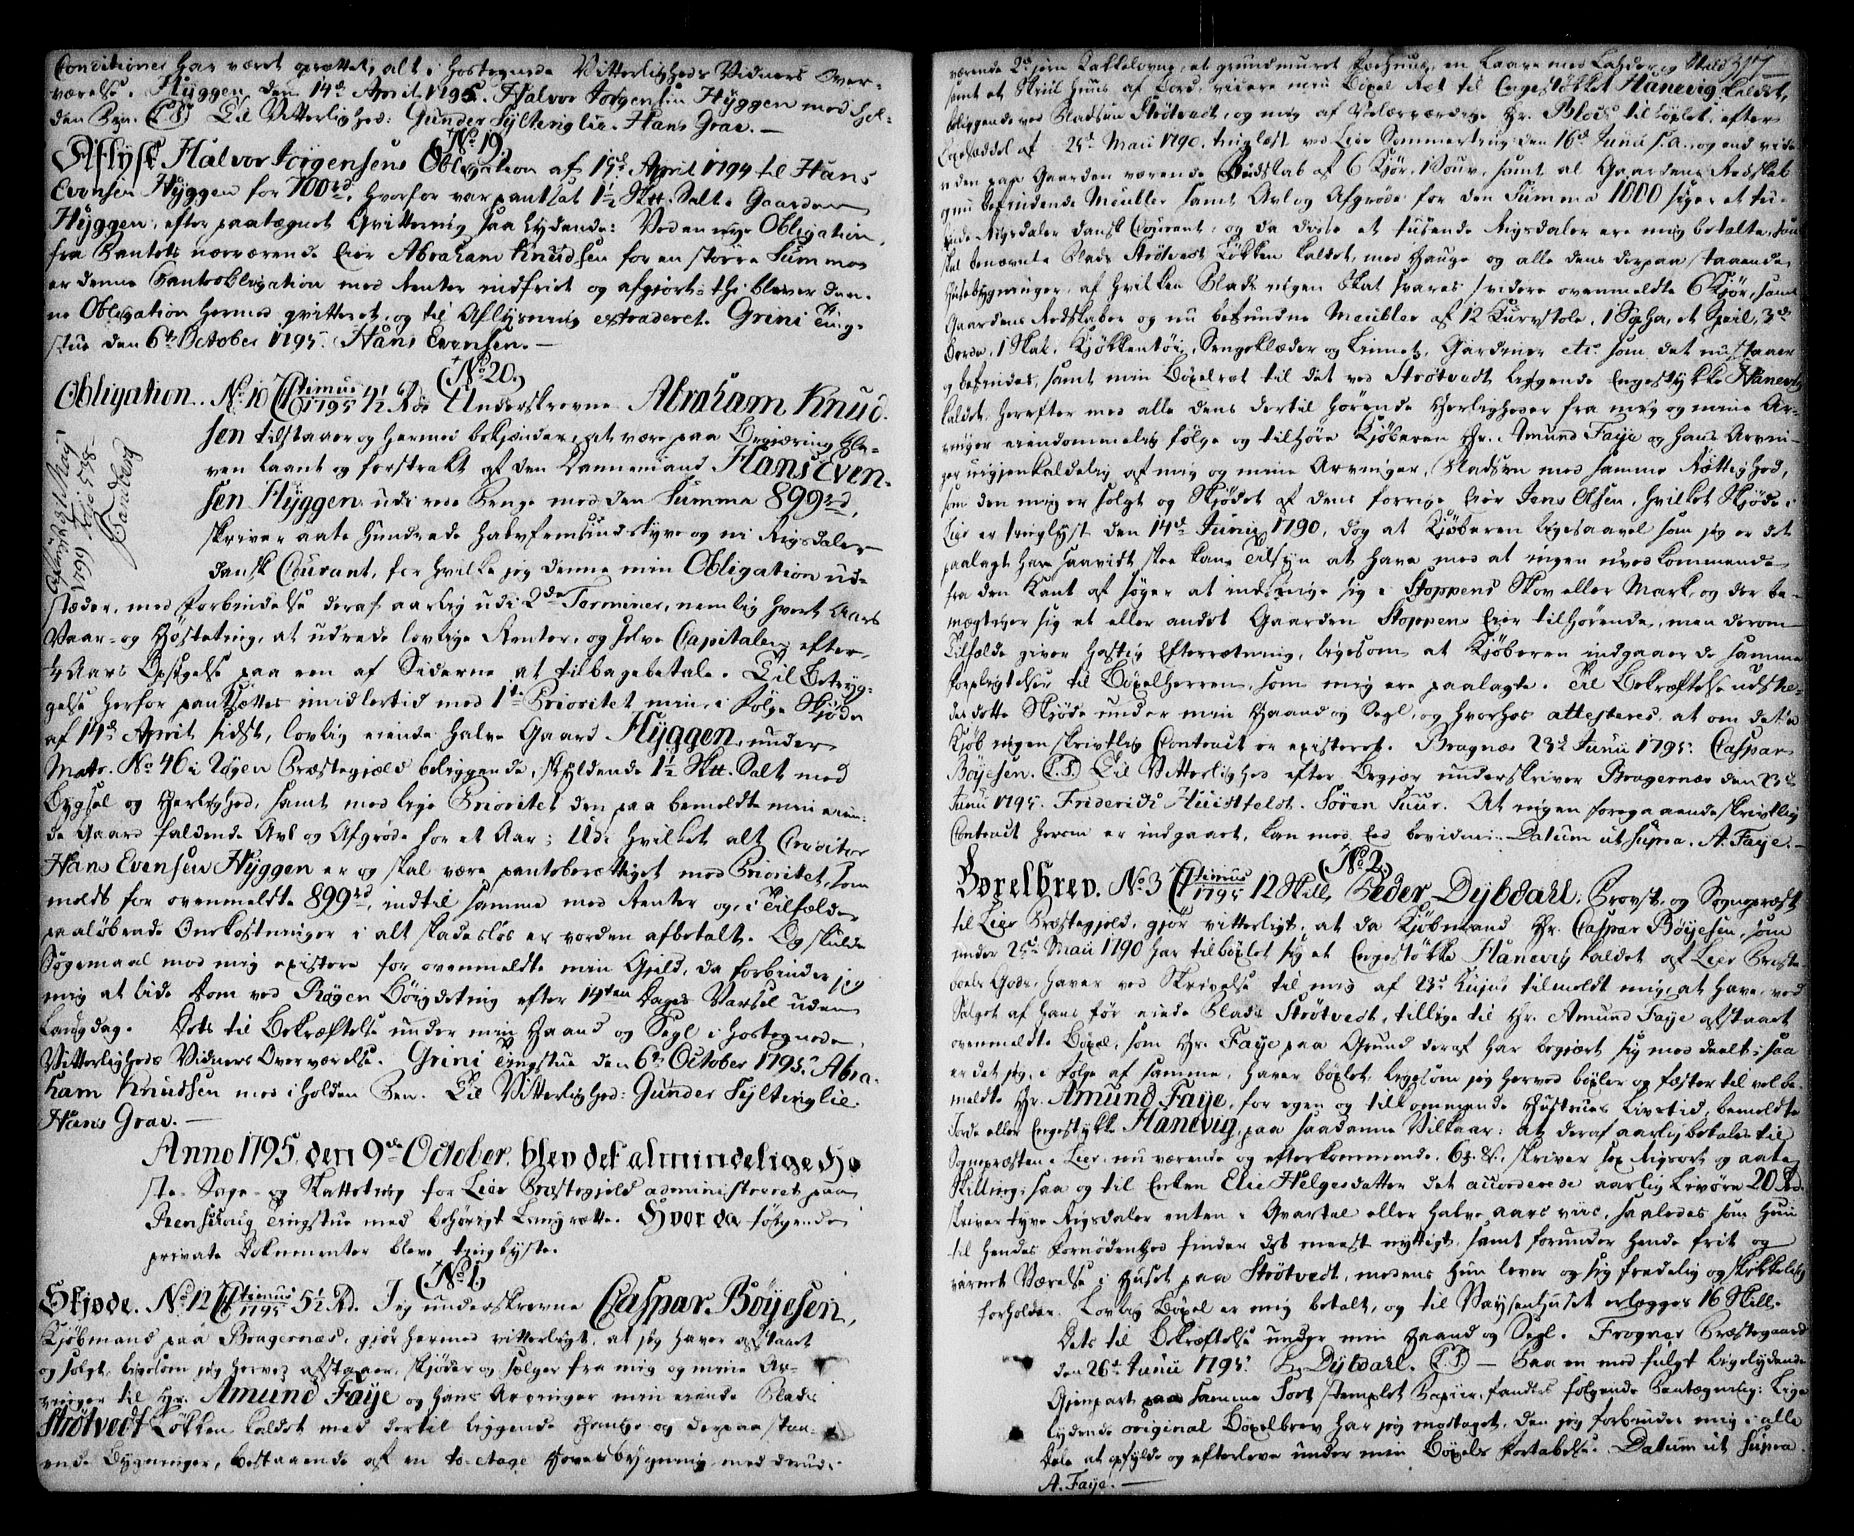 Conditioner har været oprettet, alt i hostegnede Vitterligheds Vidners Over-
værelse. Hyggen den 14de April 1795. Halvor Jørgensen Hyggen med hol-
den Pen. (L.S.) Til Vitterlighed: Gunder Sylterüglie. Hans Grav. —
(No 19)
Aflyst Halvor Jørgensens Obligation af 15de April 1794 til Hans
Evensen Hyggen for 700rd, hvorfor var pantsat 1½ Skt. Salt i Gaarden
Hyggen, efter paategnet Qvittering saa lydende: Ved en nye Obligation
fra Pantets nærværende Eier Abraham Knudsen for en større Summa
er denne Pantobligation med Renter indfriet og afgiort; thi blever den-
ne Obligation hermed qvitteret, og til Aflysning extraderet. Grini Ting-
stue den 6te October 1795. Hans Evensen. —
(No 20.)
Obligation. No 10 Ctimus 1795 4½ Rd. Underskrevne Abraham Knud-
sen tilstaaer og hermed bekjænder, at være paa Begiæring ble-
ven laant og forstrakt af den Dannemand Hans Even-
sen Hyggen udi rede Penge med den Summa 899rd,
skriver aate hundrede halvfemsindstyve og ni Rigsdaler
dansk Courant, for hvilke jeg denne min Obligation ud-
stæder, med Forbindelse deraf aarlig udi 2de Terminer, nemlig hvert Aars
Vaar- og Høsteting, at udrede lovlige Renter, og selve Capitalen efter
¼ Aars Opsigelse paa een af Siderne at tilbagebetale. Til Betryg-
gelse herfor pantsættes imidlertid med 1te Prioritet min, i Følge Skjøde
af 14de April sidst, lovlig eiende halve Gaard Hyggen, under
Matr. No 46 i Røgen Præstegield beliggende, skyldende 1½ Skt. Salt med
Bygsel og Herlighed, samt med lige Prioritet den paa bemeldte min eien-
de Gaard faldende Avl og Afgrøde for et Aar; Udi hvilket alt Creditor
Hans Evensen Hyggen er og skal være pantoberættiget med Prioritet, som
meldt for ovenmeldte 899rd, indtil samme med Renter og, i Tilfælde
paaløbende Omkostninger i alt skadesløs er vorden afbetalt. Og skulde
Søgemaal mod mig existere for ovenmeldte min Gjeld, da forbinder jeg
mig at lide Dom ved Røgen Bøigdeting efter 14ten Dages Varsel uden
Langdag. Dets til Bekræftelse under min Haand og Segl i hostegnede
Vitterligheds Vidners Overværelse. Grini Tingstue den 6te October 1795. Abra-
ham Knudsen med iholden Pen. Til Vitterlighed: Gunder Sylterüglie.
Hans Grav. —
1799 Folio 538
Anno 1795, den 9de October, blev det almindelige Hø-
ste- Sage- og Skatteting for Lier Præstegield administreret paa
Renskoug Tingstue med behørigt Laugrætte. Hvor da følgende
private Dokumenter blev tinglyste.
(No 1)
Skjøde. No 12 Ctimus 1795 5½ Rd. Jeg underskrevne Caspar Böyesen,
Kjøbmand paa Bragernæs, gjør hermed vitterligt, at jeg haver afstaaet
og solgt, ligesom jeg herved afstaaer, skjøder og sælger fra mig og mine Ar-
vinger til Hr. Amund Faye og hans Arvinger min eiende Plads
Strøtvedt Løkken kaldet med dertil liggende Hauge og derpaa staa-
ende Bygninger, bestaaende af en to-etage Hovedbygning med derudi
317
værende 2de jern Kakkelovne, et grundmuret Kokhuus, en Laave med Lahder og Stald
samt et Skiul Huus af Bord, videre min Böxel Ret til Engestøkket Hanevig kaldet,
beliggende ved Pladsen Strøtvedt, og mig af Velærværdige Hr. Bloch tilböxlet, efter
Böxelseddel af 25de Maii 1790. tinglæst ved Lier Sommerting den 16de Junii s.a. og end vide-
re den paa Gaarden værende Budskab af 6 Kjør, 1 Souv, samt al Gaardens Redskab
og nu befindende Meubler samt Avl og Afgrøde for den Summa 1000 siger et tu-
sende Rigsdaler dansk Courant; og da disse et tusende Rigsdaler ere mig betalte, saa
skal benævnte Plads Strøtvedt Løkken kaldet, med Hauge og alle dens derpaa staaende
Husebygninger, af hvilken Plads ingen Skat svares, videre ovenmeldte 6 Kjør, samt
Gaardens Redskaber og nu befindne Meubler af 12 Kurvstole, 1 Sopha, et Speil, 3de
Borde, 1 Skab, Kjøkkentøi, Sengeklæder og Linnet, Gardiner etc. som det nu staaer
og befindes, samt min Böxelret til det ved Strøtvedt liggende Engestykke Hanevig
kaldet, herefter med alle dens dertil hørende Herligheder fra mig og mine Ar-
vinger eiendommelig følge og tilhøre Kjøberen Hr. Amund Faye og hans Arvin-
ger uigjenkaldelig af mig og mine Arvinger, Pladsen med samme Rættighed,
som den mig er solgt og Skjødet af dens forrige Eier Jens Olsen, hvilket Skjøde i
Lier er tinglyst den 14de Junii 1790, dog at Kjøberen ligesaavel som jeg er det
paalagt har saavidt skee kan Tilsyn at have med at ingen uvedkommende
fra den Kant af søger at indsnige sig i Stoppens Skov eller Mark, og der be-
mægtiger sig et eller andet Gaarden Stoppens Eier tilhørende, men derom i
Tilfælde giver hastig Efterretning, ligesom at Kjøberen indgaaer de samme
Forpligtelser til Böxelherren, som mig ere paalagte. Til Bekræftelse udstæ-
des dette Skjøde under min Haand og Segl, og hvorhos attesteres, at om dette
Kjøb ingen skrivtlig Contract er existeret. Bragnæs 23de Junii 1795. Caspar
Böyesen. (L.S.) Til Vitterlighed efter Begjær underskriver Bragernæs den 23de
Junii 1795. Friderich Huistfeldt. Søren Juur. At ingen foregaaende skrivtlig
Contract herom er indgaaet, kan med Eed bevidnes. Datum ut supra. A. Faye. —
(No 2)
Böxelbrev. No 3 Ctimus 1795 12 Skill. Peder Dybdahl, Provst, og Sognepræst
til Lier Præstegjeld, gjør vitterligt, at da Kjøbmand Hr. Caspar Böyesen, som
under 25de Maii 1790 har tilböxlet sig et Engestøkke Hanevig kaldet af Lier Præste-
boels Gods, haver ved Skrivelse til mig af 23de hujus tilmeldt mig, at have ved
Salget af hans før eiede Plads Strøtvedt, tillige til Hr. Amund Faye afstaaet
ovenmeldte Böxel, som Hr. Faye paa Grund deraf har begjært sig meddeelt; saa
er det jeg, i Følge af samme, haver böxlet, ligesom jeg herved böxler og fæster til vel be-
meldte Hr. Amund Faye, for egen og tilkommende Hustrues Livstid, bemeldte
Jorde eller Engestykke Hanevig, paa saadanne Vilkaar: at deraf aarlig betales til
Sognepræsten i Lier, nu værende og efterkommende, 6 ₰. 8 s. skriver sex Rigsort og aate
Skilling; saa og til Enken Elie Helgesdatter det accorderede aarlig Livøre 20 Rd.
skriver tyve Rigsdaler enten i Qvartal eller halve aars viis, saaledes som hun
til hendes Fornødenhed finder det meest nyttigt, samt forunder hende frit og
varmet Værelse i Huset paa Strøtvedt, medens hun lever og sig fredelig og skikkelig
forholder. Lovlig Böxel er mig betalt, og til Vaysenhuset erlægges 16 Skill.
Dets til Bekræftelse under min Haand og Segl. Frogner Præstegaard
den 26de Junii 1795. P. Dybdahl. (L.S.) — Paa en med fulgt ligelydende
Gjenpart paa samme Sort stemplet Papiir, fandtes følgende Paategning: Lige-
lydende original Böxelbrev har jeg modtaget, den jeg forbinder mig i alle
Dele at opfylde og efterleve under min Böxels Fortabelse. Datum ut supra.
A. Faye. —